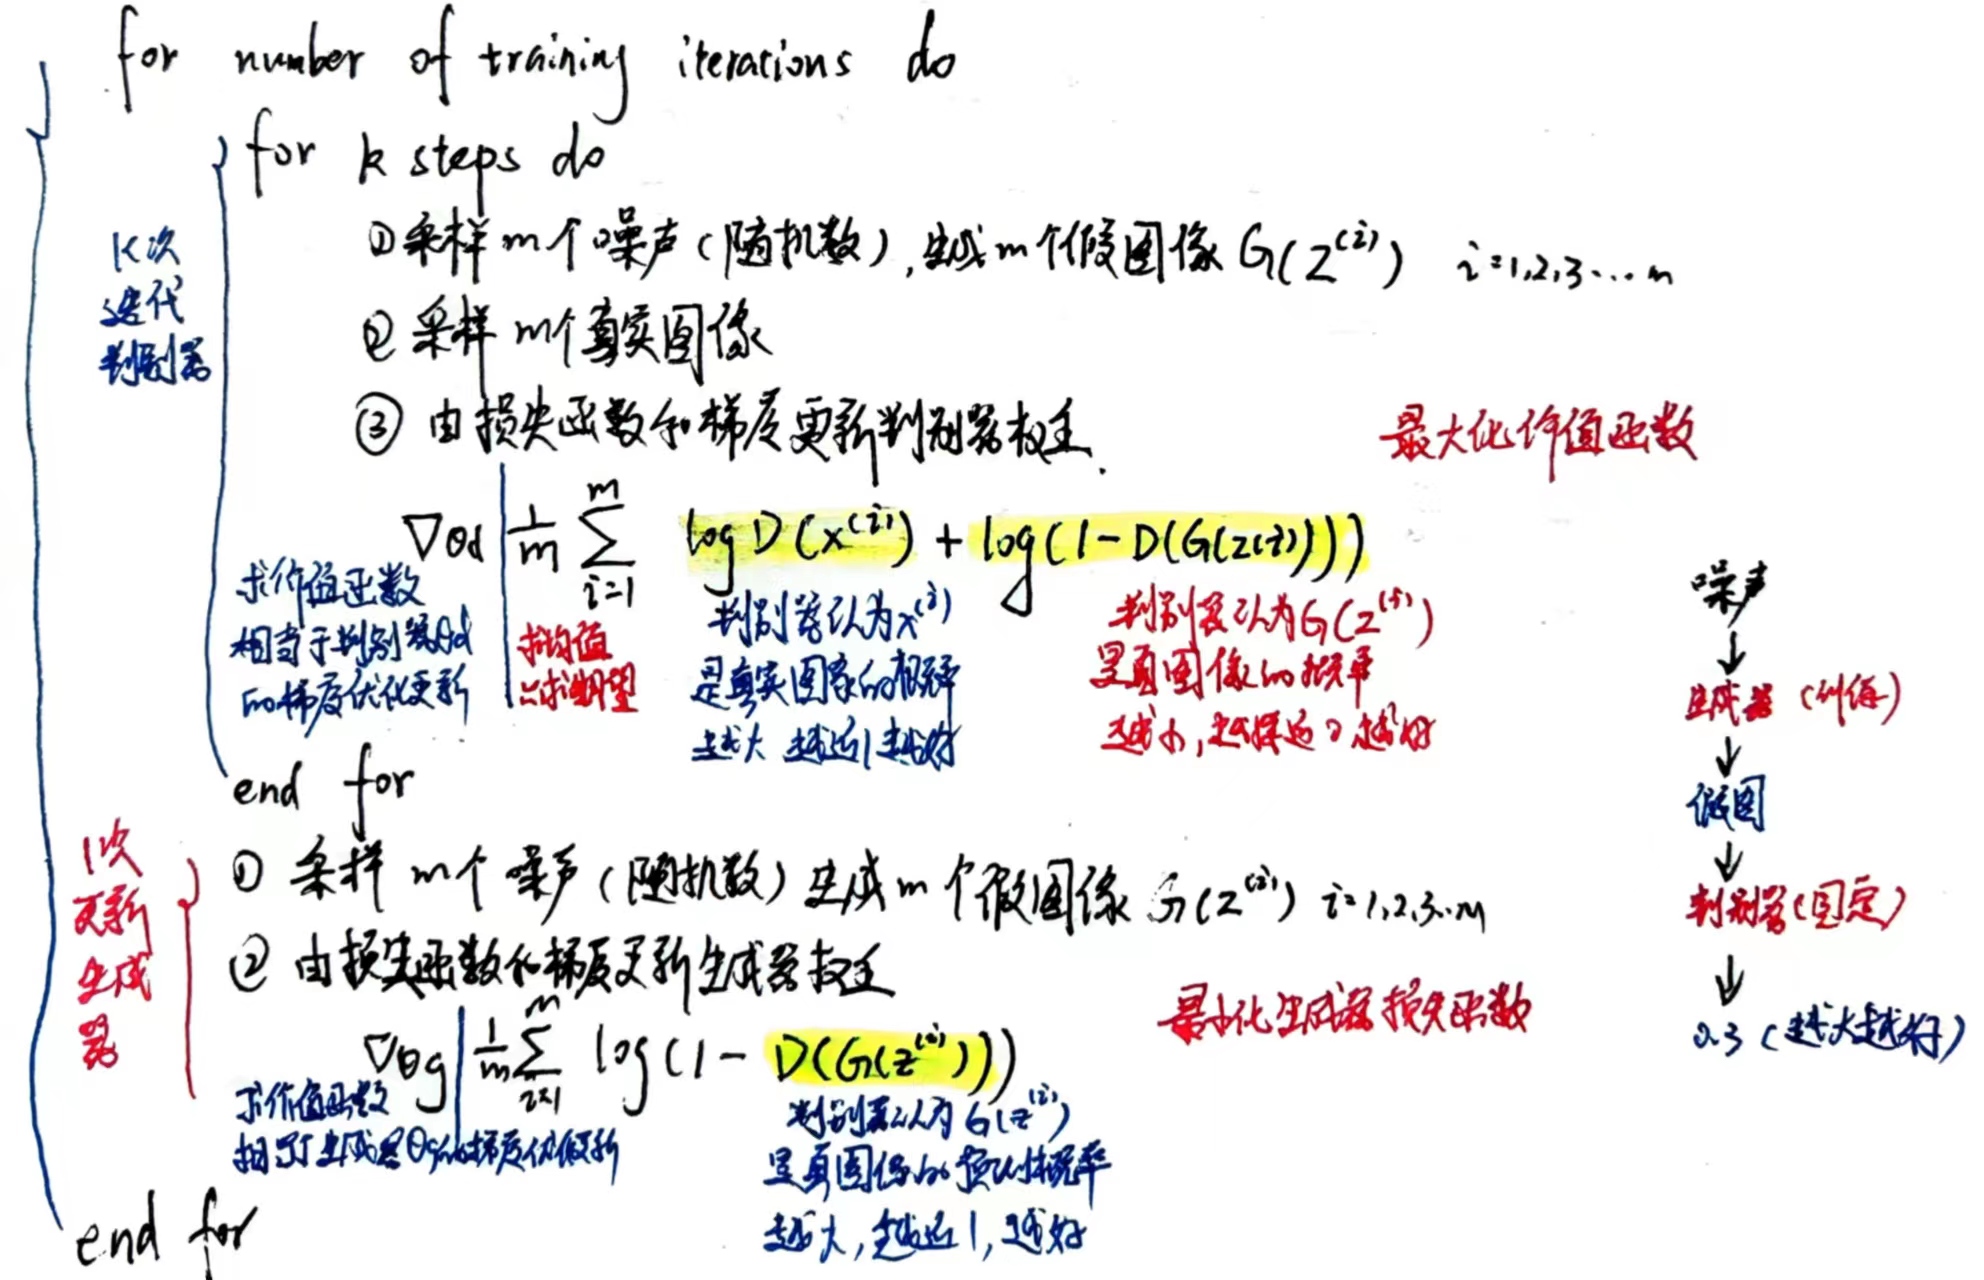 for number of training iterations do
for k steps do
K次
迭代
判别器
①采样m个噪声(随机数),生成m个假图像 G(Z^(i)) i=1,2,3...m
②采样m个真实图像
③ 由损失函数和梯度更新判别器权重.
最大化价值函数
∇θd 1/m Σ_{i=1}^{m} log D(x^(i)) + log(1-D(G(z(i))))
求价值函数
相当于判别器θd
的梯度优化更新
求均值
≈求期望
判别器认为x^(i)
是真实图像的概率
越大 越近1越好
判别器认为G(Z^(i))
是真图像的概率
越小,越接近0越好
end for
1次
更新
生成
器
① 采样m个噪声(随机数)生成m个假图像 G(Z^(i)) i=1,2,3..m
② 由损失函数和梯度更新生成器权重
最小化生成器损失函数
∇θg 1/m Σ_{i=1}^{m} log(1-D(G(z^(i))))
求价值函数
生成器θg的梯度优化更新
判别器认为G(z^(i))
是真图像的预测概率
越大,越近1,越好
end for
噪声
↓
生成器(训练)
↓
假图
↓
判别器(固定)
↓
0.3(越大越好)